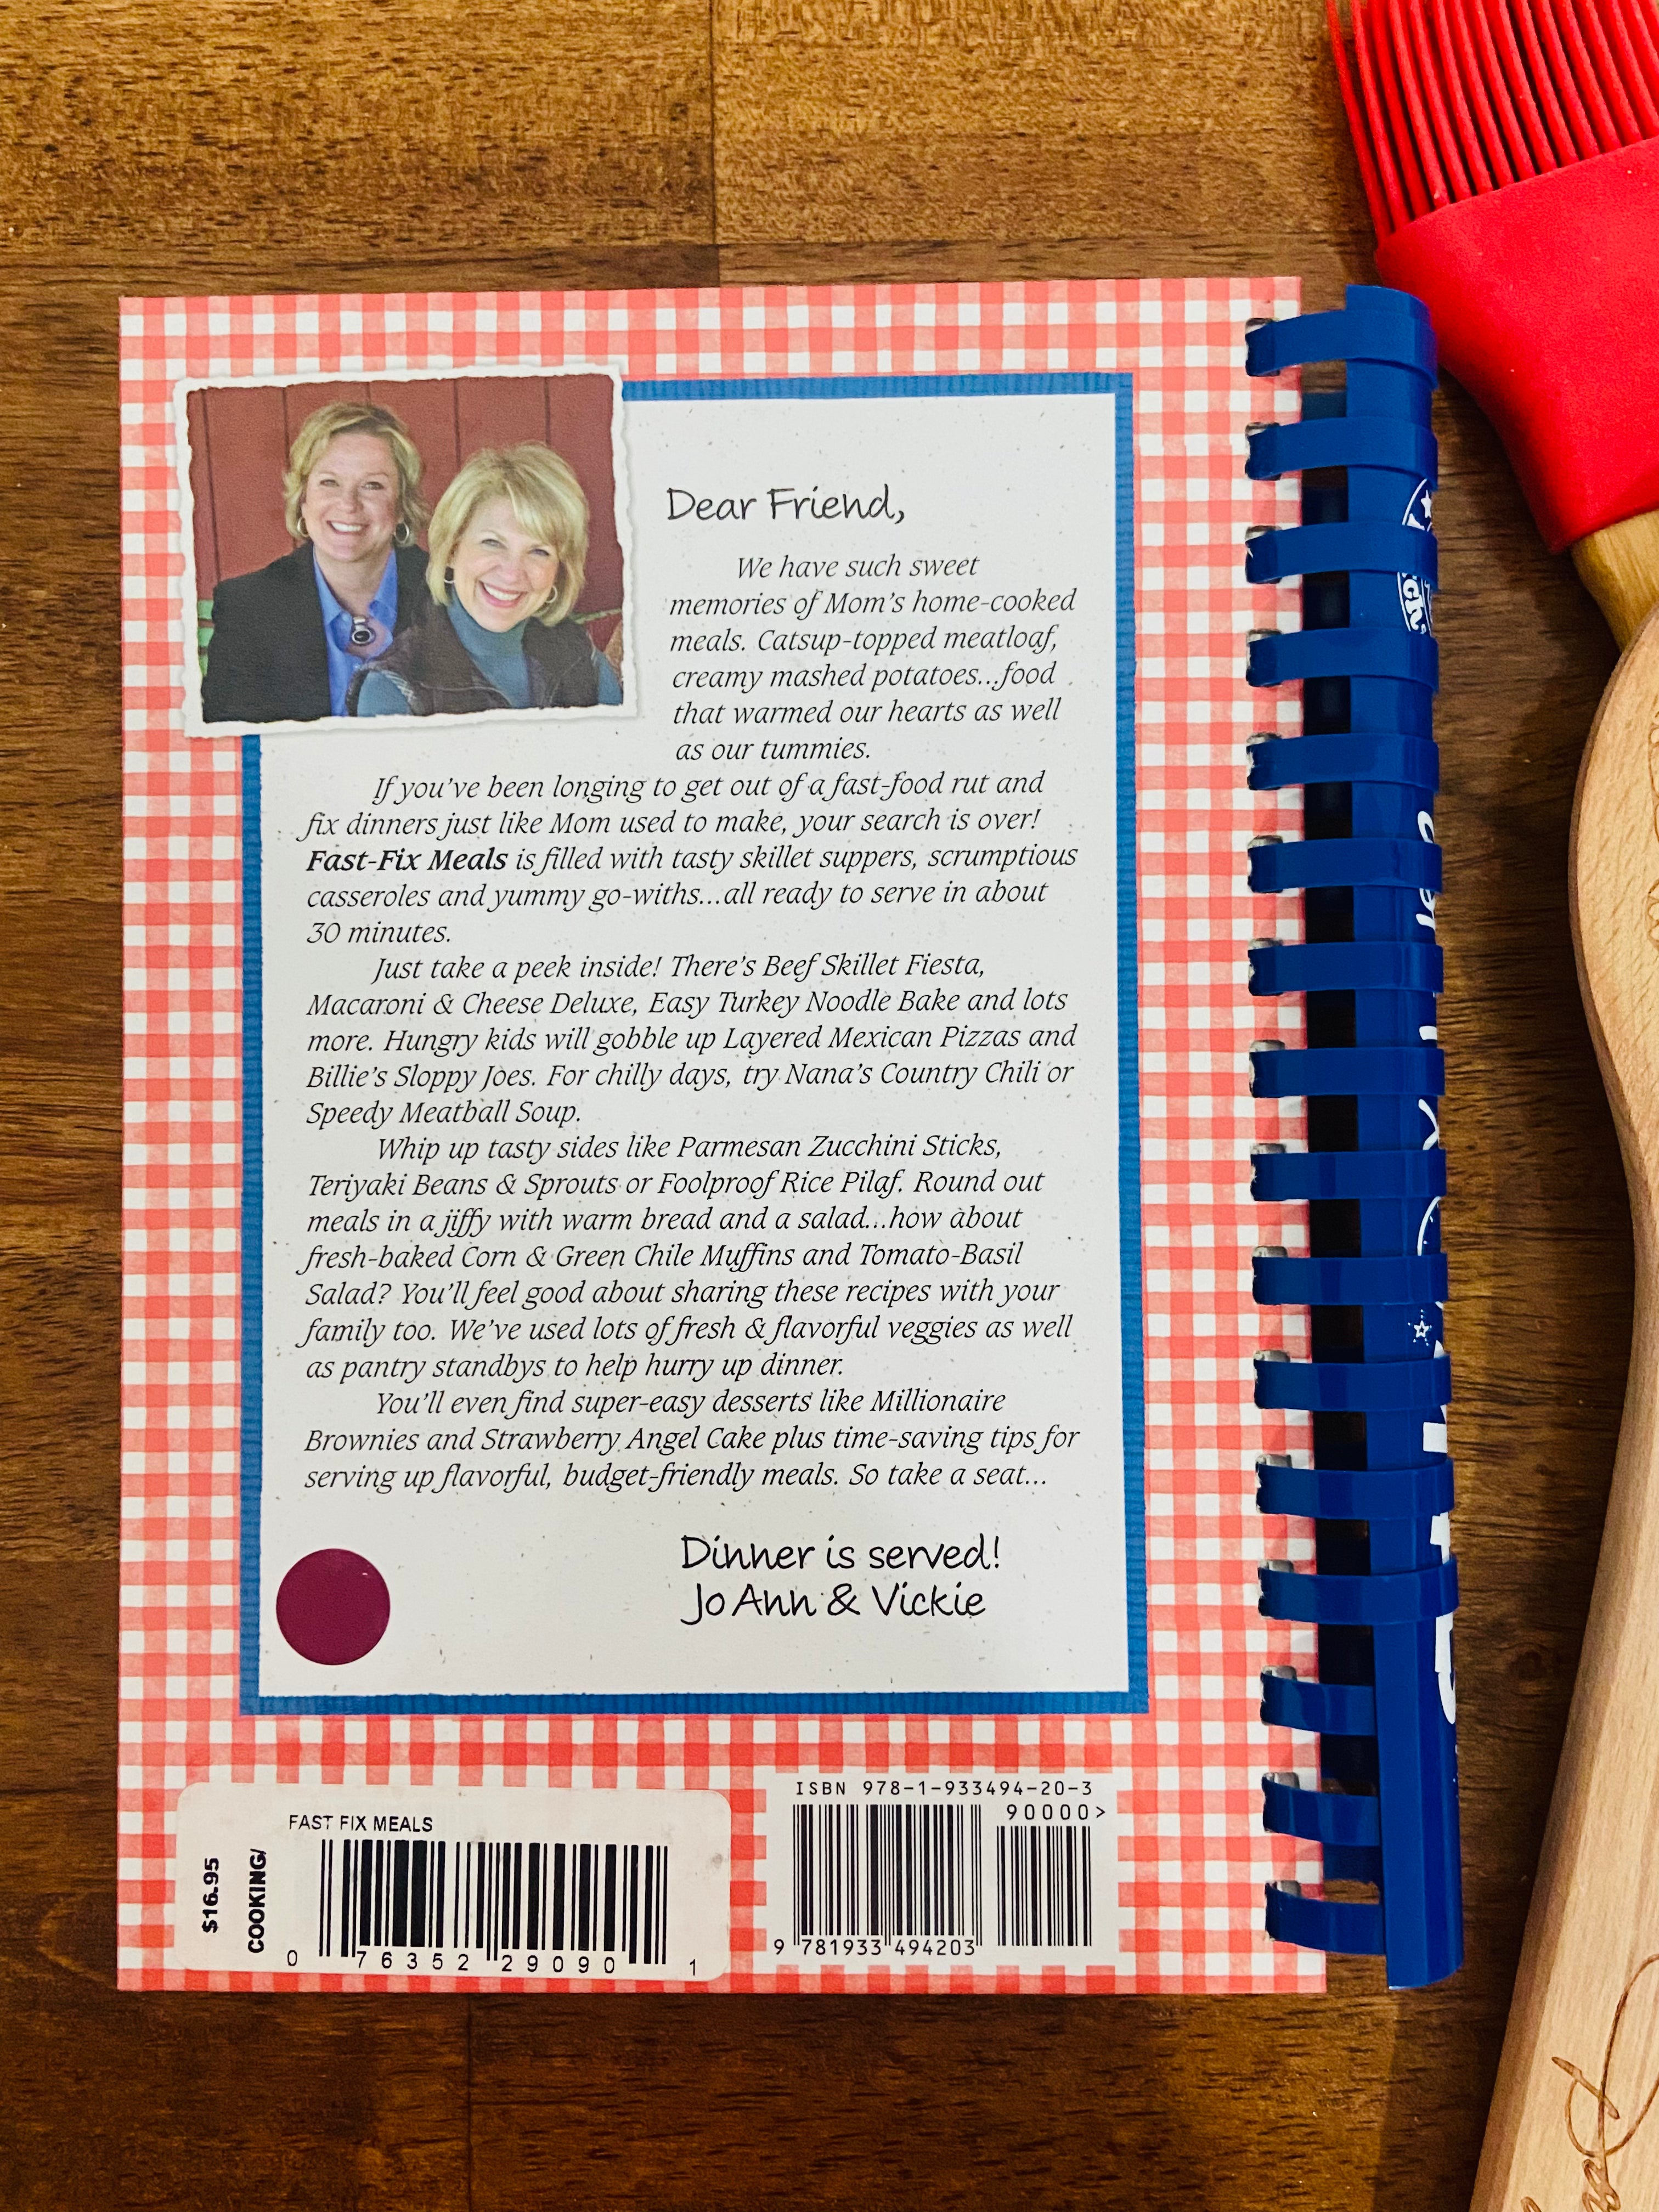 Dear Friend,
We have such sweet
memories of Mom's home-cooked
meals. Catsup-topped meatloaf,
creamy mashed potatoes...food
that warmed our hearts as well
as our tummies.
If you've been longing to get out of a fast-food rut and
fix dinners just like Mom used to make, your search is over!
Fast-Fix Meals is filled with tasty skillet suppers, scrumptious
casseroles and yummy go-withs...all ready to serve in about
30 minutes.
Just take a peek inside! There's Beef Skillet Fiesta,
Macaroni & Cheese Deluxe, Easy Turkey Noodle Bake and lots
more. Hungry kids will gobble up Layered Mexican Pizzas and
Billie's Sloppy Joes. For chilly days, try Nana's Country Chili or
Speedy Meatball Soup.
Whip up tasty sides like Parmesan Zucchini Sticks,
Teriyaki Beans & Sprouts or Foolproof Rice Pilaf. Round out
meals in a jiffy with warm bread and a salad...how about
fresh-baked Corn & Green Chile Muffins and Tomato-Basil
Salad? You'll feel good about sharing these recipes with your
family too. We've used lots of fresh & flavorful veggies as well
as pantry standbys to help hurry up dinner.
You'll even find super-easy desserts like Millionaire
Brownies and Strawberry Angel Cake plus time-saving tips for
serving up flavorful, budget-friendly meals. So take a seat...
Dinner is served!
Jo Ann & Vickie
FAST FIX MEALS
$16.95
COOKING/
0 76352 29090 1
ISBN 978-1-933494-20-3
90000>
9 781933 494203